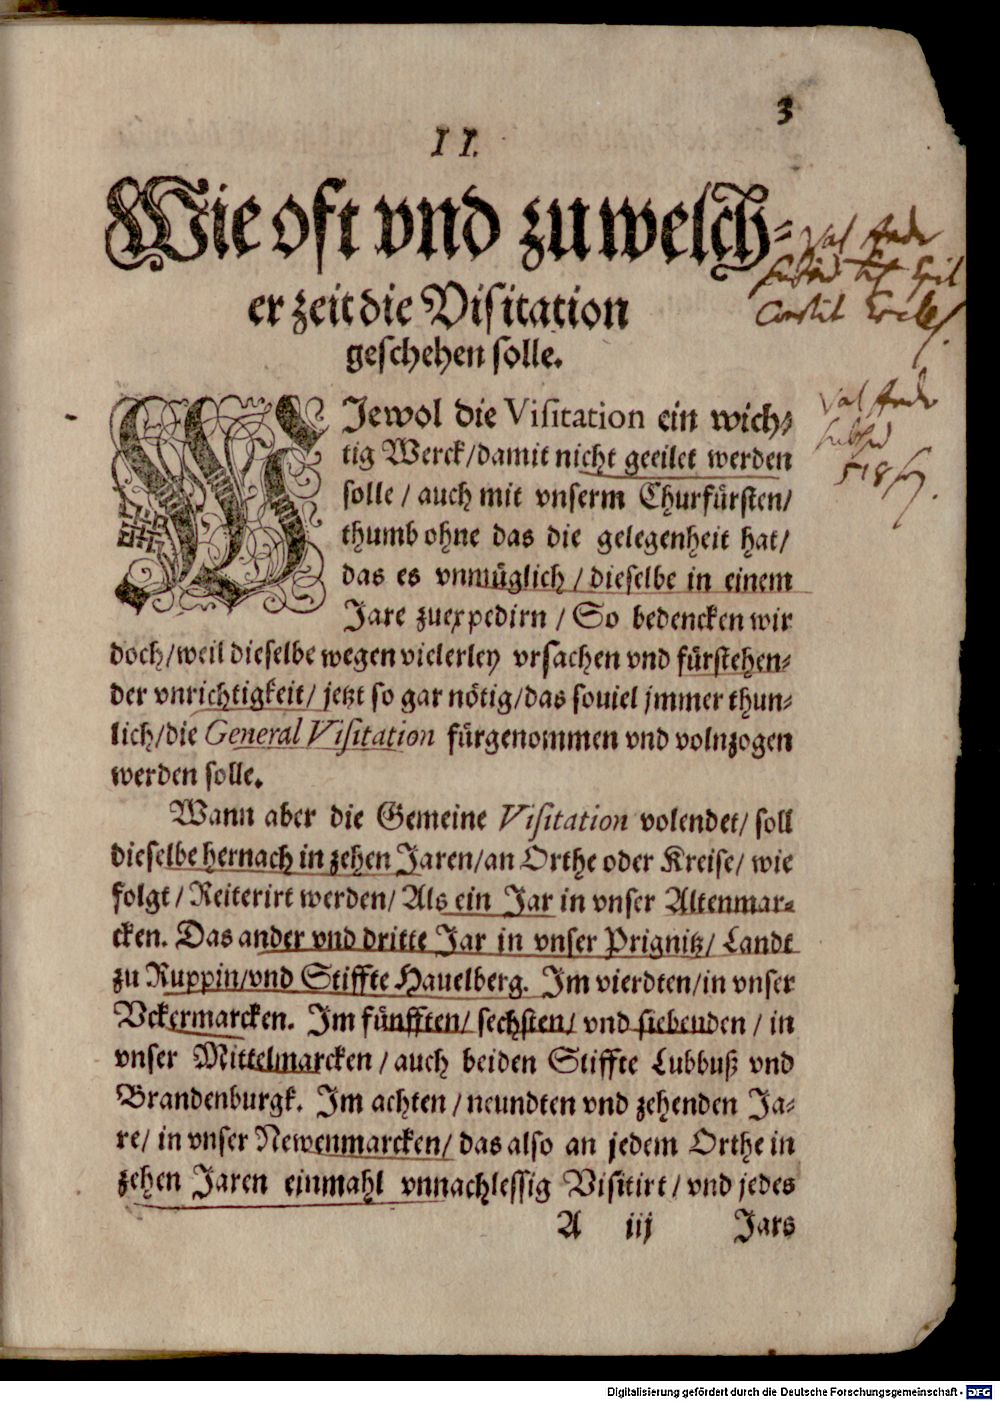 3
II.
Wie oft vnd zu welch-
er zeit die Visitation
geschehen solle.
WJewol die Visitation ein wich-
tig Werck/damit nicht geeilet werden
solle / auch mit vnserm Churfürsten/
thumb ohne das die gelegenheit hat/
das es vnmüglich / dieselbe in einem
Jare zuexpedirn / So bedencken wir
doch/weil dieselbe wegen vielerley vrsachen vnd fürstehen-
der vnrichtigkeit/ jetzt so gar nötig/das souiel jmmer thun-
lich/die General Visitation fürgenommen vnd volnzogen
werden solle.
Wann aber die Gemeine Visitation volendet/ soll
dieselbe hernach in zehen Jaren/an Orthe oder Kreise/ wie
folgt / Reiterirt werden/ Als ein Jar in vnser Altenmar-
cken. Das ander vnd dritte Jar in vnser Prignitz/ Landt
zu Ruppin/vnd Stiffte Hauelberg. Im vierdten/in vnser
Vckermarcken. Im fünfften/ sechsten/ vnd siebenden / in
vnser Mittelmarcken / auch beiden Stiffte Lubbuß vnd
Brandenburgk. Im achten / neundten vnd zehenden Ja-
re/ in vnser Newenmarcken/ das also an jedem Orthe in
zehen Jaren einmahl vnnachlessig Visitirt / vnd jedes
A iij Jars
Digitalisierung gefördert durch die Deutsche Forschungsgemeinschaft - DFG